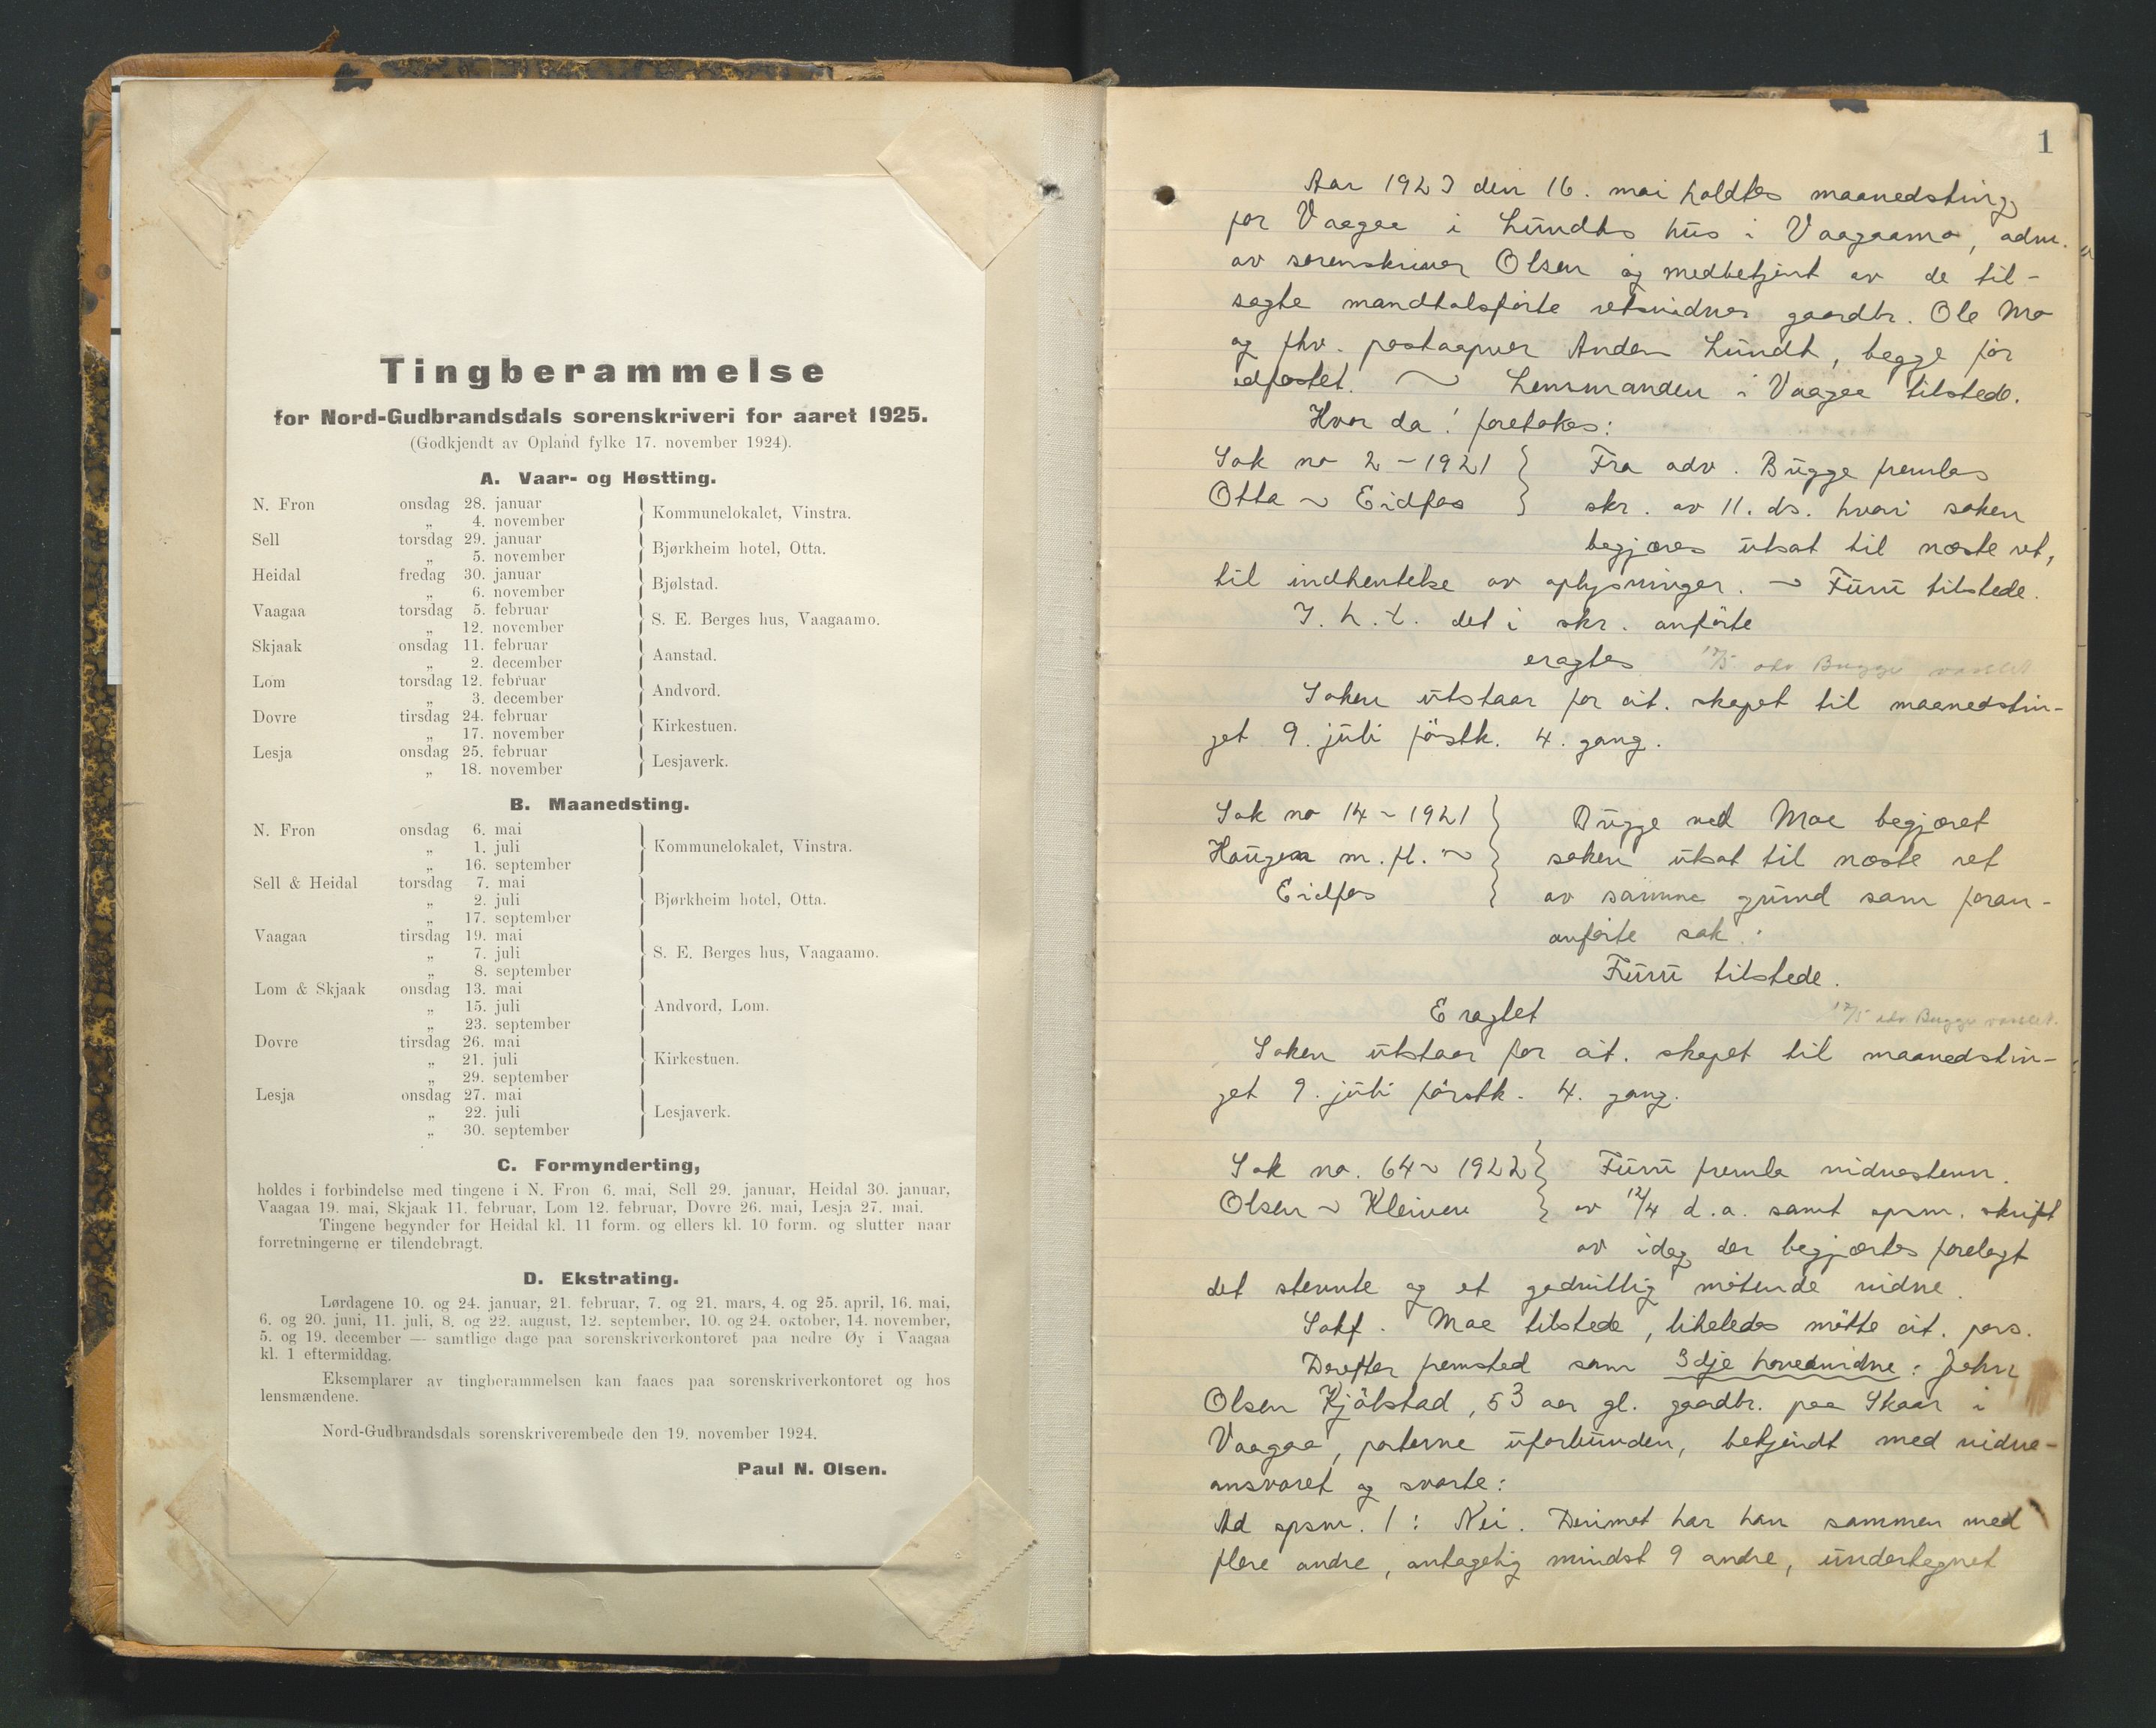 Tingberammelse
for Nord-Gudbrandsdals sorenskriveri for aaret 1925.
(Godkjendt av Opland fylke 17. november 1924).
A. Vaar- og Høstting.
N. Fron onsdag 28. januar
„ 4. november
Kommunelokalet, Vinstra.
Sell torsdag 29. januar
„ 5. november
Bjørkheim hotel, Otta.
Heidal fredag 30. januar
„ 6. november
Bjølstad.
Vaagaa torsdag 5. februar
„ 12. november
S. E. Berges hus, Vaagaamo.
Skjaak onsdag 11. februar
„ 2. december
Aanstad.
Lom torsdag 12. februar
„ 3. december
Andvord.
Dovre tirsdag 24. februar
„ 17. november
Kirkestuen.
Lesja onsdag 25. februar
„ 18. november
Lesjaverk.
B. Maanedsting.
N. Fron onsdag 6. mai
„ 1. juli
„ 16. september
Kommunelokalet, Vinstra.
Sell & Heidal torsdag 7. mai
„ 2. juli
„ 17. september
Bjørkheim hotel, Otta.
Vaagaa tirsdag 19. mai
„ 7. juli
„ 8. september
S. E. Berges hus, Vaagaamo.
Lom & Skjaak onsdag 13. mai
„ 15. juli
„ 23. september
Andvord, Lom.
Dovre tirsdag 26. mai
„ 21. juli
„ 29. september
Kirkestuen.
Lesja onsdag 27. mai
„ 22. juli
„ 30. september
Lesjaverk.
C. Formynderting,
holdes i forbindelse med tingene i N. Fron 6. mai, Sell 29. januar, Heidal 30. januar,
Vaagaa 19. mai, Skjaak 11. februar, Lom 12. februar, Dovre 26. mai, Lesja 27. mai.
Tingene begynder for Heidal kl. 11 form. og ellers kl. 10 form. og slutter naar
forretningerne er tilendebragt.
D. Ekstrating.
Lørdagene 10. og 24. januar, 21. februar, 7. og 21. mars, 4. og 25. april, 16. mai,
6. og 20. juni, 11. juli, 8. og 22. august, 12. september, 10. og 24. oktober, 14. november,
5. og 19. december — samtlige dage paa sorenskriverkontoret paa nedre Øy i Vaagaa
kl. 1 eftermiddag.
Eksemplarer av tingberammelsen kan faaes paa sorenskriverkontoret og hos
lensmændene.
Nord-Gudbrandsdals sorenskriverembede den 19. november 1924.
Paul N. Olsen.
1
Aar 1923 den 16. mai holdtes maanedsting
for Vaagaa i Lundts hus i Vaagaamo, adm.
av sorenskriver Olsen og medbetjent av de til-
sagte mandtalsførte retsvidner gaardbr. Ole Mo
og fhv. postaapner Anders Lundt, begge før
edfæstet. ~ Lensmanden i Vaagaa tilstede.
Hvor da! foretokes:
Sak no 2 - 1921 } Fra adv. Bugge fremlas
Otta ~ Eidfos } skr. av 11. ds. hvori saken
begjæres utsat til næste ret,
til indhentelse av oplysninger. ~ Furu tilstede.
I. h. t. det i skr. anførte
eragtes 12/5 adv Bugge varslet
Saken utstaar for cit. skapet til maanedstin-
get 9. juli førstk. 4. gang.
Sak no 14 ~ 1921 } Bugge ved Moe begjæret
Haugen m. fl. ~ } saken utsat til næste ret
Eidfos } av samme grund som foran-
anførte sak.
Furu tilstede.
Eragtet 12/5 adv. Bugge varslet.
Saken utstaar for cit. skapet til maanedstin-
get 9. juli førstk. 4. gang.
Sak no. 64 ~ 1922 } Furu fremla vidnestevn.
Olsen ~ Kleiven } av 12/4 d. a. samt spsm. skrift
av idag der begjærtes forelagt
det stevnte og et godvillig møtende vidne.
Sakf. Moe tilstede, likeledes møtte cit. pers.
Derefter fremsted som 3dje hovedvidne: John
Olsen Kjølstad, 53 aar gl. gaardbr. paa Skaar i
Vaagaa, parterne uforbunden, bekjendt med vidne-
ansvaret og svarte:
Ad spsm. 1: Nei. Derimot har han sammen med
flere andre, antagelig mindst 9 andre, undertegnet